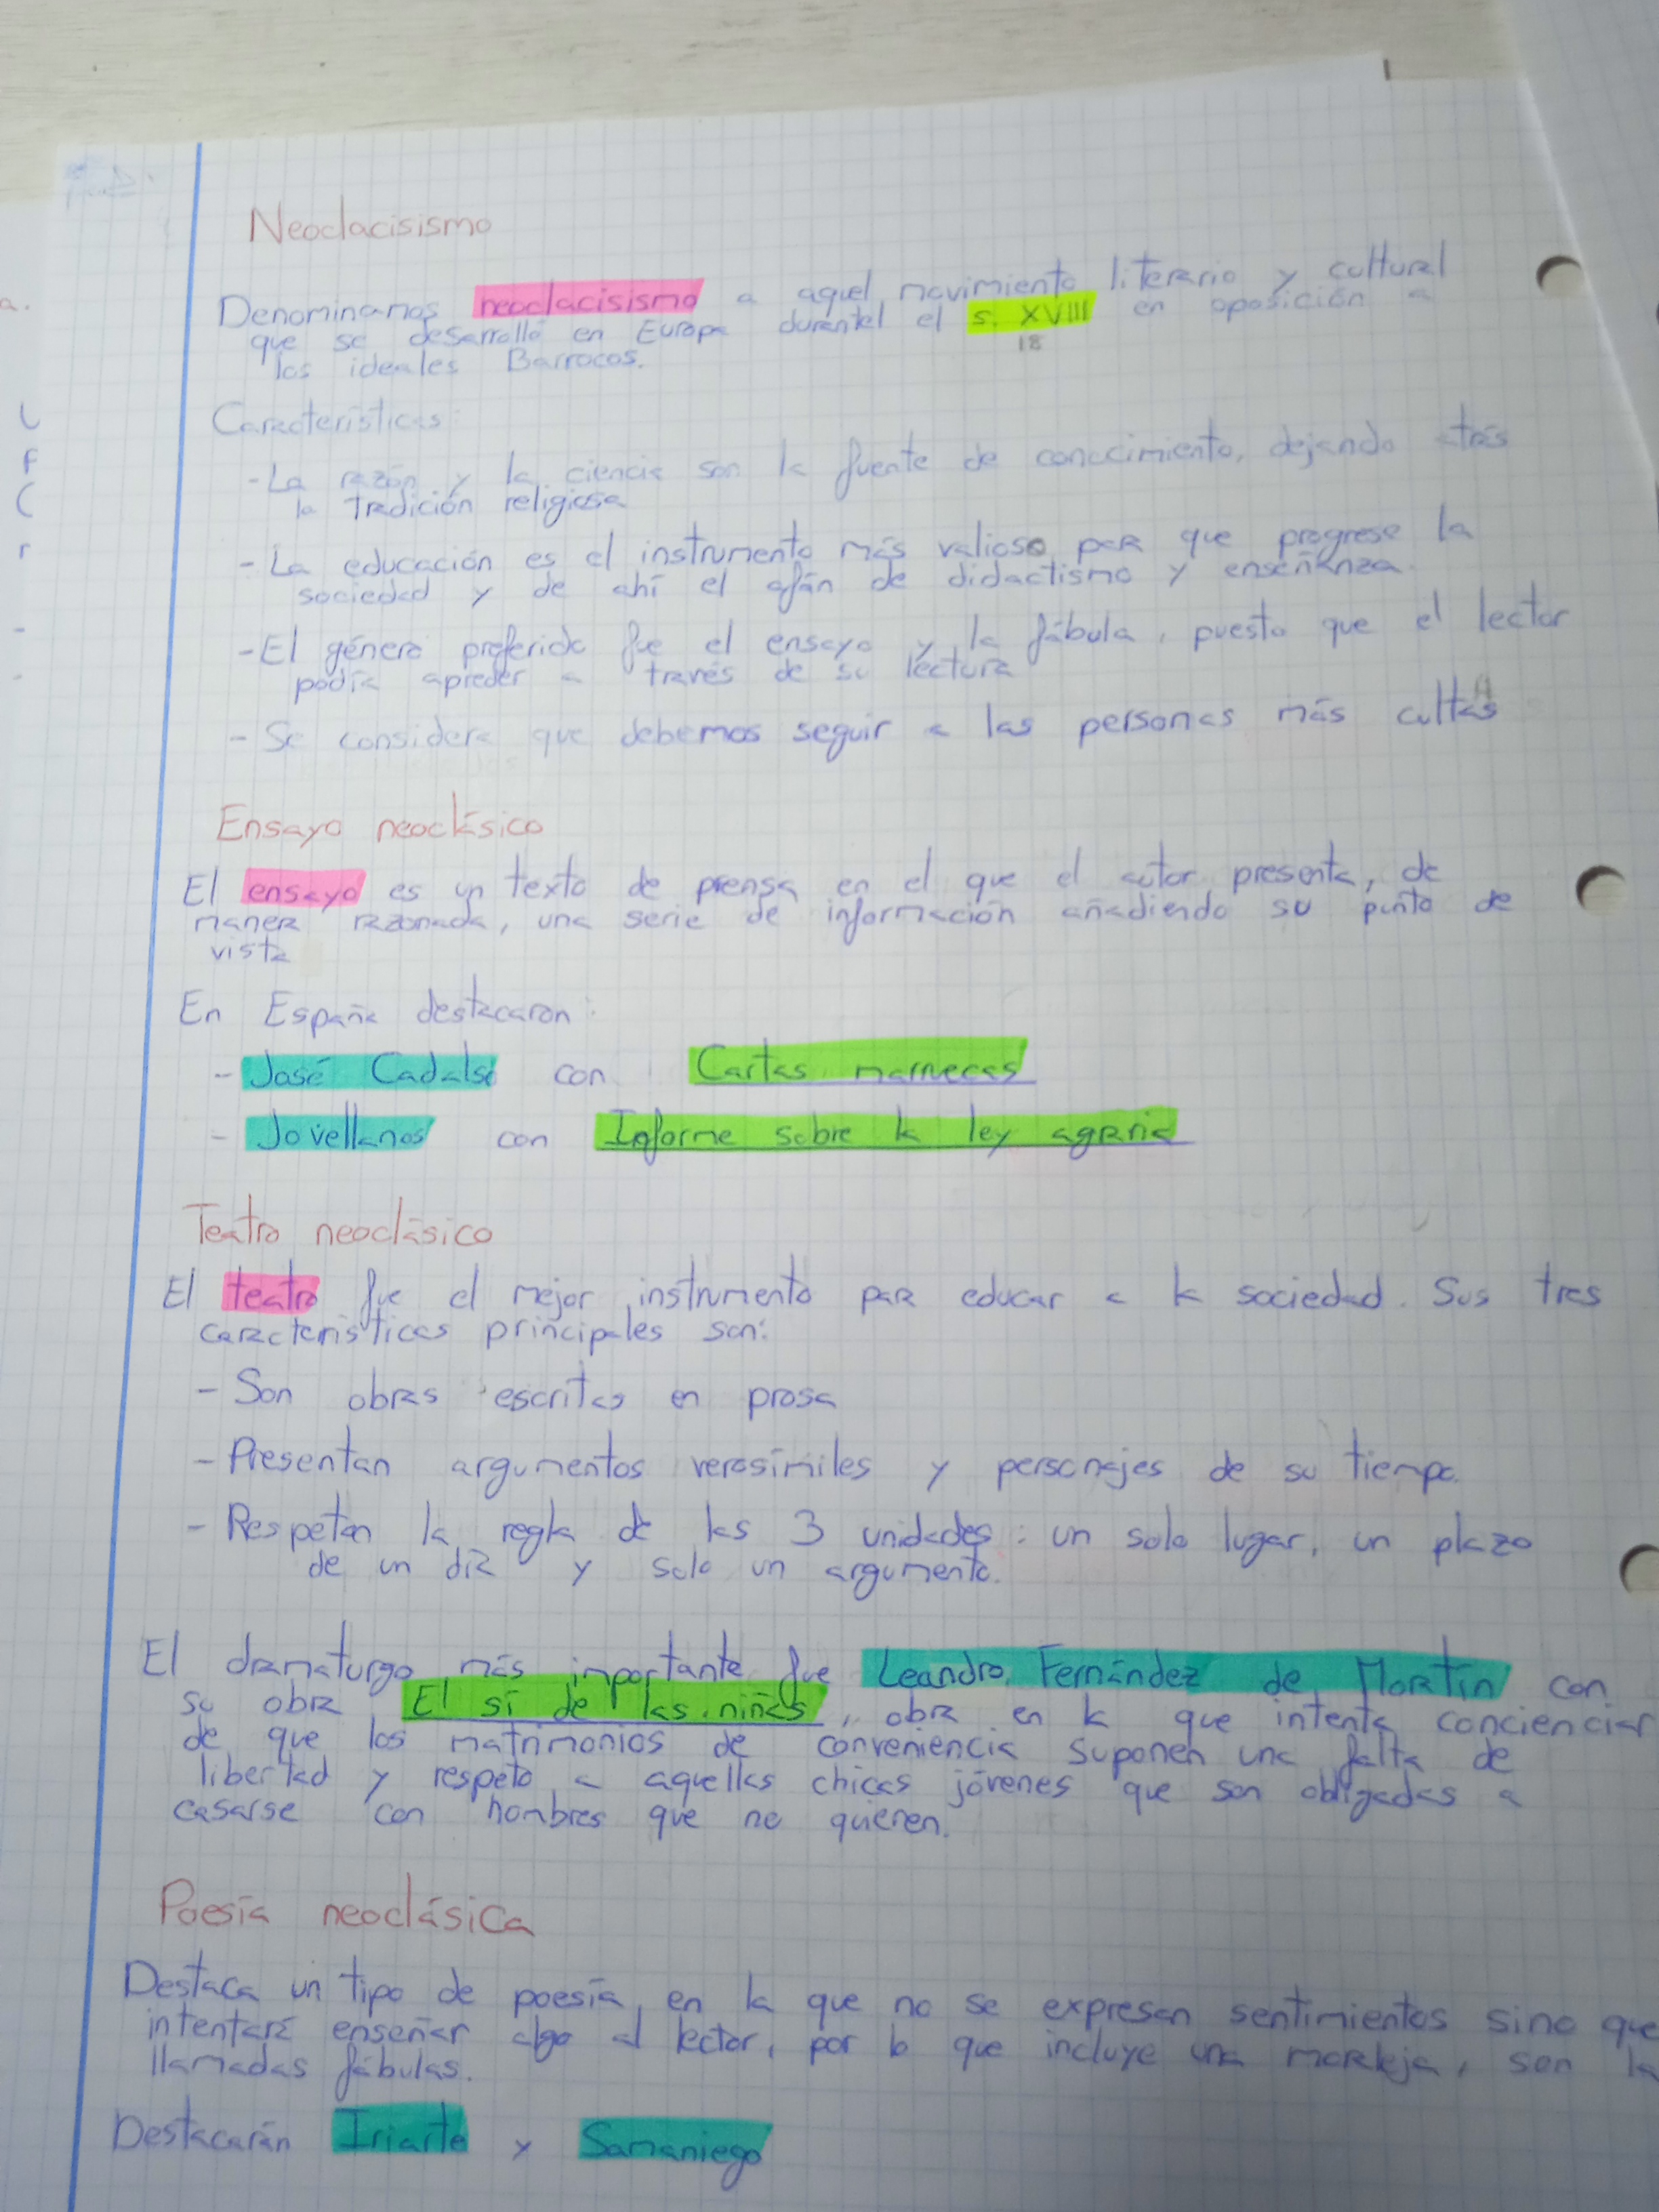 Neoclacisismo
Denominamos neoclacisismo a aquel movimiento literario y cultural
que se desarrolló en Europa durantel el s. XVIII en oposición a
18
los ideales Barrocos.
Características:
- La razón y la ciencia son la fuente de conocimiento, dejando atrás
la tradición religiosa
- La educación es el instrumento más valioso para que progrese la
sociedad y de ahí el afán de didactismo y enseñanza.
- El género preferido fue el ensayo y la fábula, puesto que el lector
podía apreder a través de su lectura
- Se considera que debemos seguir a las personas más cultas
Ensayo neoclásico
El ensayo es un texto de prensa en el que el autor presenta, de
manera razonada, una serie de información añadiendo su punto de
vista
En España destacaron:
- José Cadalso con Cartas marruecas
- Jovellanos con Informe sobre la ley agraria
Teatro neoclásico
El teatro fue el mejor instrumento para educar a la sociedad. Sus tres
características principales son:
- Son obras escritas en prosa
- Presentan argumentos verosímiles y personajes de su tiempo.
- Respetan la regla de las 3 unidades: un solo lugar, un plazo
de un día y solo un argumento.
El dramaturgo más importante fue Leandro Fernández de Moratín con
su obra El sí de las niñas, obra en la que intenta concienciar
de que los matrimonios de conveniencia suponen una falta de
libertad y respeto a aquellas chicas jóvenes que son obligadas a
casarse con hombres que no quieren.
Poesía neoclásica
Destaca un tipo de poesía, en la que no se expresan sentimientos sino que
intentará enseñar algo al lector, por lo que incluye una moraleja, son la
llamadas fábulas.
Destacarán Iriarte y Samaniego